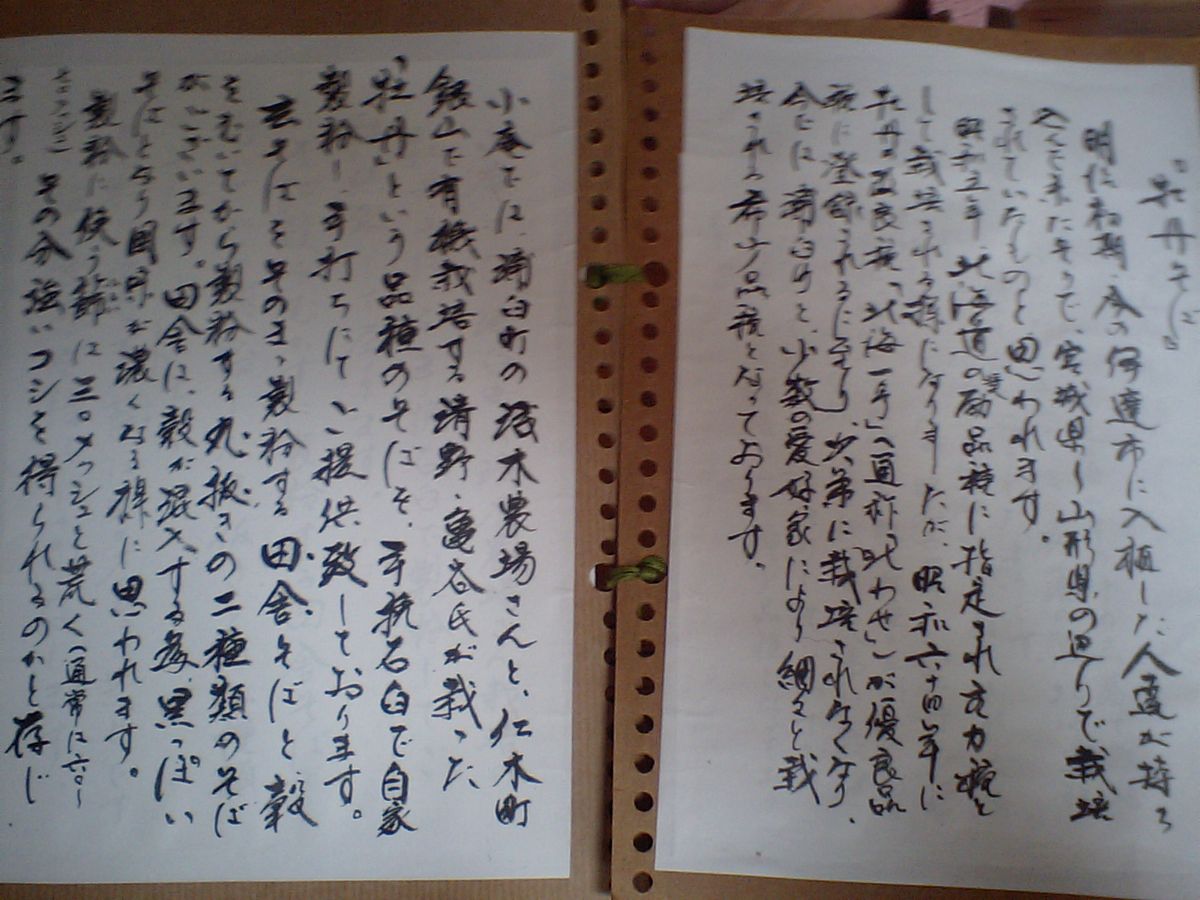 『牡丹そば』
明治初期、今の伊達市に入植した人達が持ち
込んで来たそうで、宮城県～山形県の辺りで栽培
されていたものと思われます。
昭和五年、北海道の奨励品種に指定され主力種と
して栽培される様になりましたが、昭和六十四年に
牡丹の改良種「北海一号」（通称“北わせ”）が優良品
種に登録されるに至り、次第に栽培されなくなり、
今では浦臼町と、少数の愛好家により細々と栽
培される希少品種となっております。
小庵では、浦臼町の 農場さんと、仁木町
銀山で有機栽培する清野・亀谷氏が栽った
“牡丹”という品種のそばを、手挽石臼で自家
製粉し、手打ちにてご提供致しております。
玄そばをそのまゝ製粉する田舎そばと、殻
をむいてから製粉する丸抜きの二種類のそば
がございます。田舎は、殻が混入する為、黒っぽい
そばと 風味が濃くなる様に思われます。
製粉に使う篩は三〇メッシュと荒く（通常は六〇～
その分強いコシを得られるのかと存じ
ます。